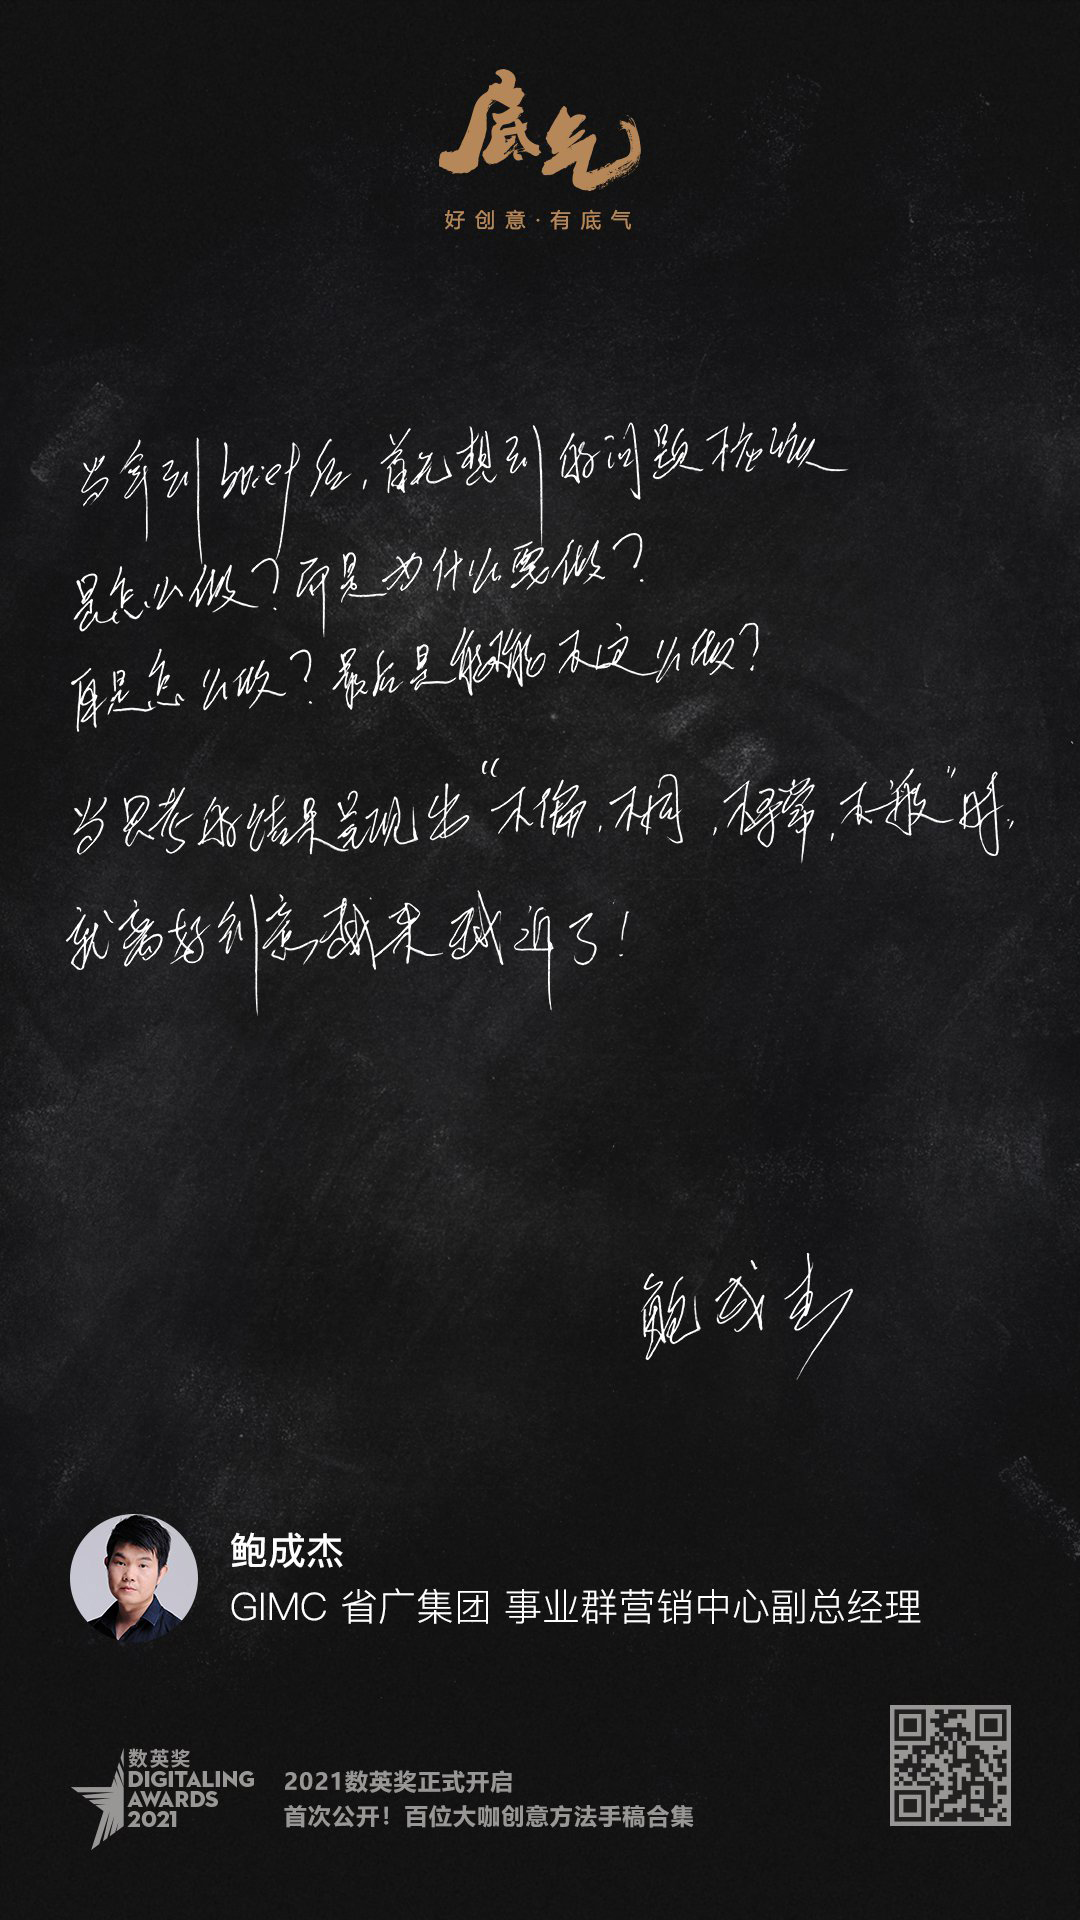 底气
好创意·有底气
当拿到brief后,首先想到的问题不应该
是怎么做?而是为什么要做?
再是怎么做?最后是能不能不这么做?
当思考的结果呈现出“不偏,不同,不寻常,不一般”时,
就离好创意越来越近了!
鲍成杰
鲍成杰
GIMC 省广集团 事业群营销中心副总经理
数英奖
DIGITALING
AWARDS
2021
2021数英奖正式开启
首次公开!百位大咖创意方法手稿合集